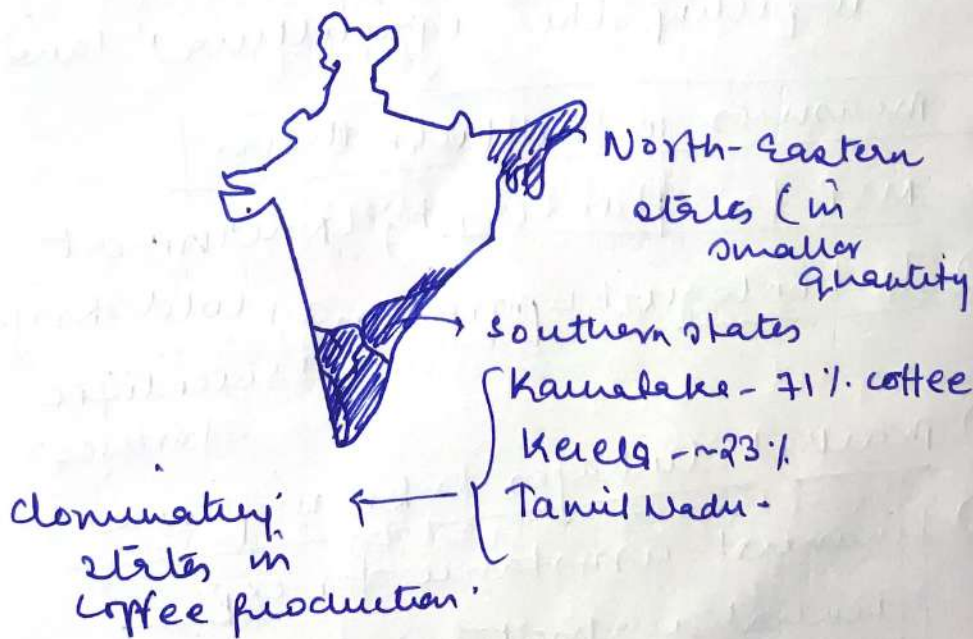 North-Eastern
states (in
smaller
quantity
Southern states
Karnataka - 71% coffee
Kerela - ~23%
Tamil Nadu -
dominating
states in
coffee production.